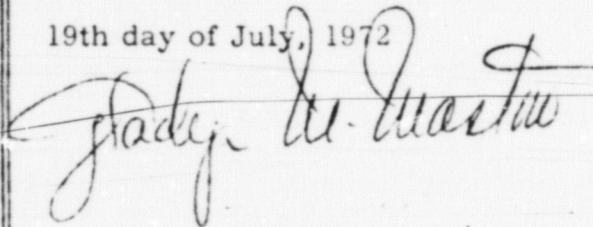 19th day of July, 1972
Gladys M. Mastin